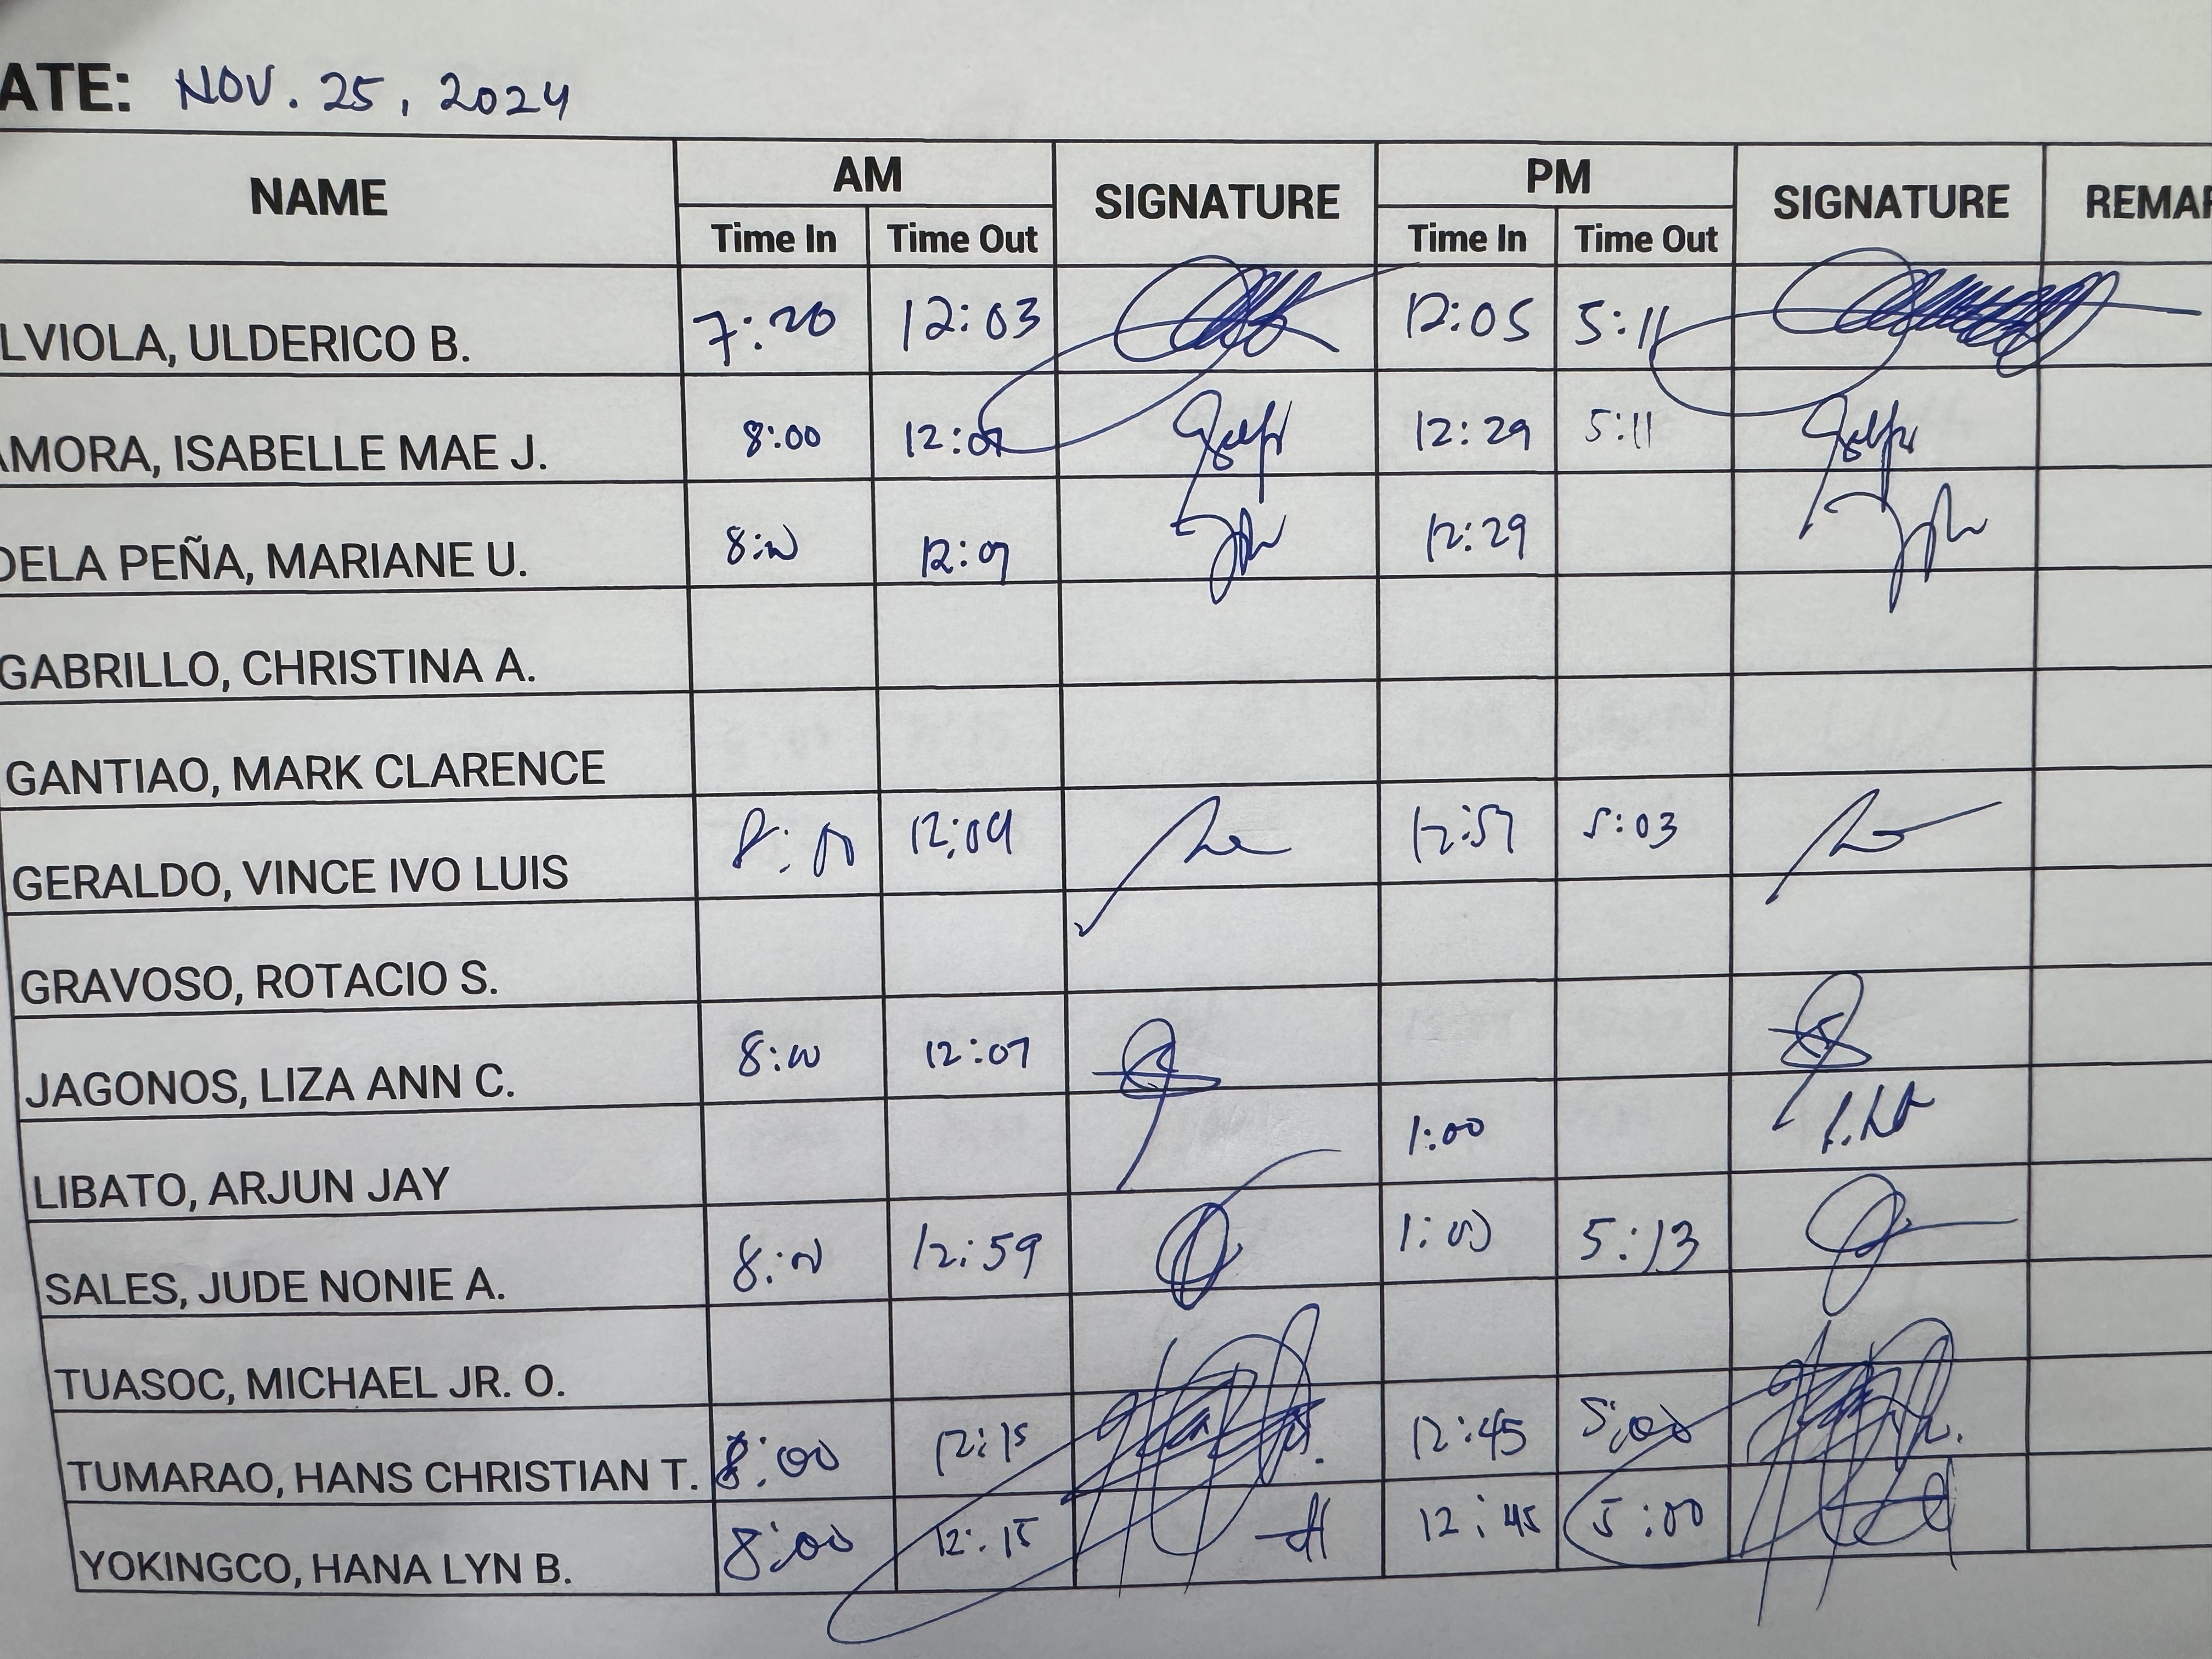 ATE: NOV. 25, 2024
NAME AM SIGNATURE PM SIGNATURE REMAR
Time In Time Out Time In Time Out
LVIOLA, ULDERICO B. 7:20 12:03 12:05 5:11
AMORA, ISABELLE MAE J. 8:00 12:07 12:29 5:11
DELA PEÑA, MARIANE U. 8:00 12:07 12:29
GABRILLO, CHRISTINA A.
GANTIAO, MARK CLARENCE
GERALDO, VINCE IVO LUIS 8:00 12:04 12:57 5:03
GRAVOSO, ROTACIO S.
JAGONOS, LIZA ANN C. 8:00 12:07
LIBATO, ARJUN JAY 1:00
SALES, JUDE NONIE A. 8:00 12:59 1:00 5:13
TUASOC, MICHAEL JR. O.
TUMARAO, HANS CHRISTIAN T. 8:00 12:15 12:45 5:00
YOKINGCO, HANA LYN B. 8:00 12:15 12:45 5:00